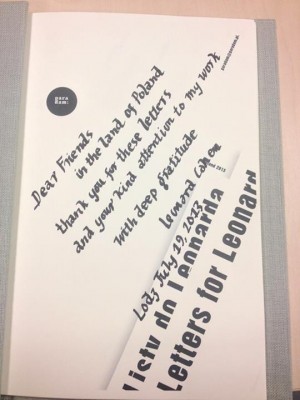 para
Ram:
Dear Friends
in the land of Poland
thank you for these letters
and your kind attention to my work
with deep gratitude
Leonard Cohen
Lodz July 19, 2013
listy do Leonarda
Letters for Leonard